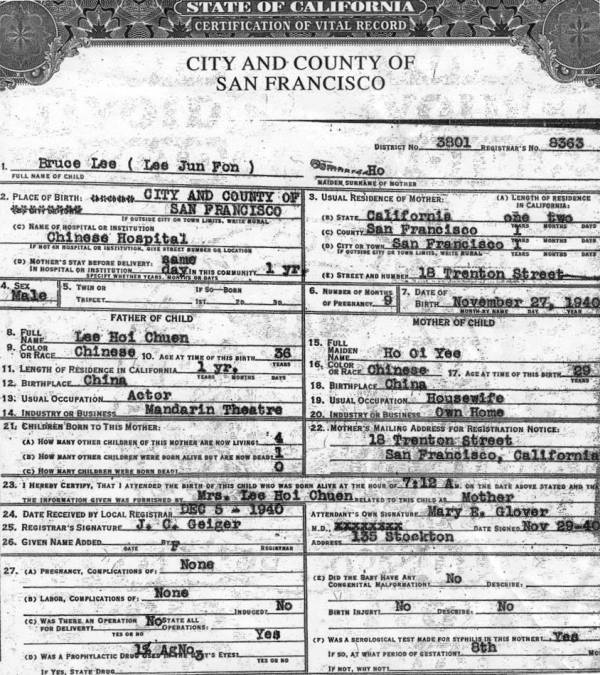 STATE OF CALIFORNIA
CERTIFICATION OF VITAL RECORD
CITY AND COUNTY OF
SAN FRANCISCO
DISTRICT NO. 3801 REGISTRAR'S NO. 8363
1. Bruce Lee ( Lee Jun Fon ) Ho
FULL NAME OF CHILD MAIDEN SURNAME OF MOTHER
2. PLACE OF BIRTH: CITY AND COUNTY OF
SAN FRANCISCO
IF OUTSIDE CITY OR TOWN LIMITS, WRITE RURAL
(C) NAME OF HOSPITAL OR INSTITUTION
Chinese Hospital
IF NOT IN HOSPITAL OR INSTITUTION, GIVE STREET NUMBER OR LOCATION
(D) MOTHER'S STAY BEFORE DELIVERY: same
IN HOSPITAL OR INSTITUTION day IN THIS COMMUNITY 1 yr
SPECIFY WHETHER YEARS, MONTHS OR DAYS
3. USUAL RESIDENCE OF MOTHER: (A) LENGTH OF RESIDENCE
IN CALIFORNIA:
(B) STATE California one two
YEARS MONTHS DAYS
(C) COUNTY San Francisco 1
YEARS MONTHS DAYS
(D) CITY OR TOWN San Francisco 1
IF OUTSIDE CITY OR TOWN LIMITS, WRITE RURAL YEARS MONTHS DAYS
(E) STREET AND NUMBER 18 Trenton Street
4. SEX Male
5. TWIN OR TRIPLET IF SO—BORN
1ST. 2D. 3D.
6. NUMBER OF MONTHS
OF PREGNANCY 9
7. DATE OF
BIRTH November 27, 1940
MONTH BY NAME DAY YEAR
FATHER OF CHILD
8. FULL
NAME Lee Hoi Chuen
9. COLOR
OR RACE Chinese 10. AGE AT TIME OF THIS BIRTH 36
YEARS
11. LENGTH OF RESIDENCE IN CALIFORNIA 1 yr.
YEARS MONTHS DAYS
12. BIRTHPLACE China
13. USUAL OCCUPATION Actor
14. INDUSTRY OR BUSINESS Mandarin Theatre
MOTHER OF CHILD
15. FULL
MAIDEN
NAME Ho Oi Yee
16. COLOR
OR RACE Chinese 17. AGE AT TIME OF THIS BIRTH 29
YEARS
18. BIRTHPLACE China
19. USUAL OCCUPATION Housewife
20. INDUSTRY OR BUSINESS Own Home
21. CHILDREN BORN TO THIS MOTHER:
(A) HOW MANY OTHER CHILDREN OF THIS MOTHER ARE NOW LIVING? 4
(B) HOW MANY OTHER CHILDREN WERE BORN ALIVE BUT ARE NOW DEAD? 1
(C) HOW MANY CHILDREN WERE BORN DEAD? 0
22. MOTHER'S MAILING ADDRESS FOR REGISTRATION NOTICE:
18 Trenton Street
San Francisco, California
23. I HEREBY CERTIFY, THAT I ATTENDED THE BIRTH OF THIS CHILD WHO WAS BORN ALIVE AT THE HOUR OF 7:12 A. ON THE DATE ABOVE STATED AND THAT
THE INFORMATION GIVEN WAS FURNISHED BY Mrs. Lee Hoi Chuen RELATED TO THIS CHILD AS Mother
24. DATE RECEIVED BY LOCAL REGISTRAR DEC 5 - 1940
25. REGISTRAR'S SIGNATURE J. C. Geiger
26. GIVEN NAME ADDED BY
DATE REGISTRAR
ATTENDANT'S OWN SIGNATURE Mary E. Glover
M.D., xxxxxxxx DATE SIGNED Nov 29-40
ADDRESS 135 Stockton
27. (A) PREGNANCY, COMPLICATIONS OF: None
(B) LABOR, COMPLICATIONS OF: None
INDUCED? No
(C) WAS THERE AN OPERATION No STATE ALL
FOR DELIVERY? OPERATIONS:
YES OR NO Yes
(D) WAS A PROPHYLACTIC DRUG USED IN THE BABY'S EYES? YES OR NO
1% AgNo3
IF YES, STATE DRUG
(E) DID THE BABY HAVE ANY No
CONGENITAL MALFORMATION? DESCRIBE:
BIRTH INJURY? No DESCRIBE: No
(F) WAS A SEROLOGICAL TEST MADE FOR SYPHILIS IN THIS MOTHER? Yes
IF SO, AT WHAT PERIOD OF GESTATION? 8th MO
IF NOT, WHY NOT?